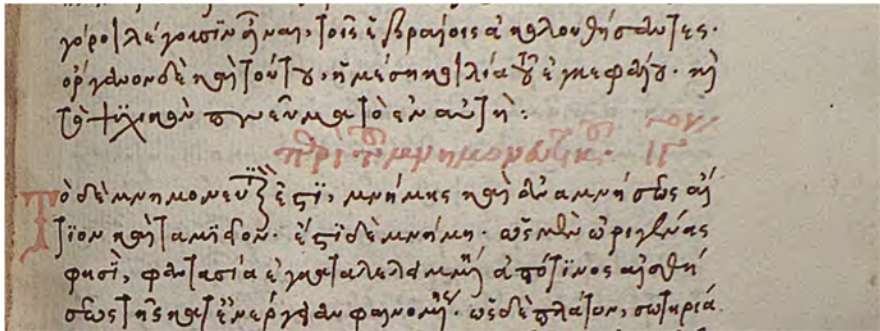 γόροι λέγουσιν εἶναι, τοῖς ἑβραίοις ἀκολουθήσαντες·
ὄργανον δὲ καὶ τούτου, ἡ μέση κοιλία τοῦ ἐγκεφάλου· καὶ
τὸ ψυχικὸν πνεῦμα τὸ ἐν αὐτῆ:
περὶ τοῦ μνημονευτικοῦ· ιγ
Τὸ δὲ μνημονευτικόν ἐστϊ, μνήμης καὶ ἀναμνήσεως αἴ
τϊον καὶ ταμιεῖον· ἔστϊ δὲ μνήμη· ὡς μὲν ὠριγένης
φησὶ, φαντασία ἐγκαταλελειμμένη ἀπό τϊνος αἰσθή
σεως τῆς κατ' ἐνέργειαν φαινομένης· ὡς δὲ πλάτων, σωτηρία